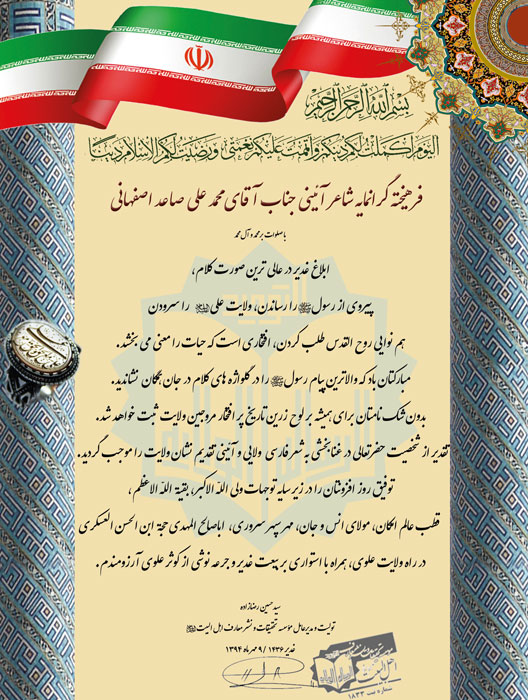 بسم الله الرحمن الرحیم
الیوم اکملت لکم دینکم و اتممت علیکم نعمتی و رضیت لکم الاسلام دینا
فرهیخته گرانمایه شاعر آئینی جناب آقای محمد علی صاعد اصفهانی
با صلوات بر محمد و آل محمد
ابلاغ غدیر در عالی ترین صورت کلام،
پیروی از رسول ﷺ را رساندن، ولایت علی را سرودن
هم نوایی روح القدس طلب کردن، افتخاری است که حیات را معنی می بخشد.
مبارکتان باد که والاترین پیام رسول ﷺ را در گلواژه های کلام در جان همگان نشاندید.
بدون شک نامتان برای همیشه بر لوح زرین تاریخ پر افتخار مروجین ولایت ثبت خواهد شد.
تقدیر از شخصیت حضرتعالی در غنابخشی به شعر فارسی ولایی و آیینی تقدیم نشان ولایت را موجب گردید.
توفیق روز افزونتان را در زیر سایه توجهات ولی الله الاکبر، بقیة الله الاعظم،
قطب عالم امکان، مولای انس و جان، مهر سپهر سروری، اباصالح المهدی حجة ابن الحسن العسکری
در راه ولایت علوی، همراه با استواری بر بیعت غدیر و جرعه نوشی از کوثر علوی آرزومندم.
سید حسین رضازاده
تولیت و مدیرعامل مؤسسه تحقیقات و نشر معارف اهل البیت
غدیر ۱۴۳۶ / ۹ مهرماه ۱۳۹۴
اهل البیت
شماره ثبت ۱۸۳۳